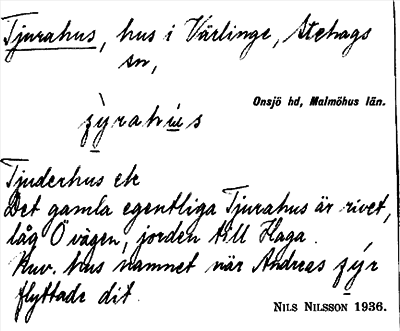 Tjurahus, hus i Värlinge, Stehags
sn,
Onsjö hd, Malmöhus län.
Tjuderhus ek
Det gamla egentliga Tjurahus är rivet,
låg Ö vägen, jorden till Haga.
hus namnet när Andreas
flyttade dit
NILS NILSSON 1936.